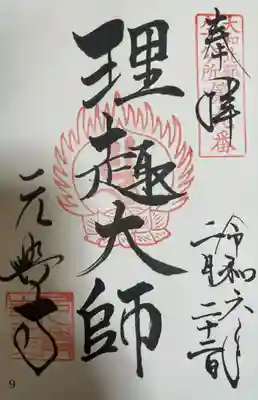 奉拝
令和六年
二月二十二日
理趣大師
元興寺
9